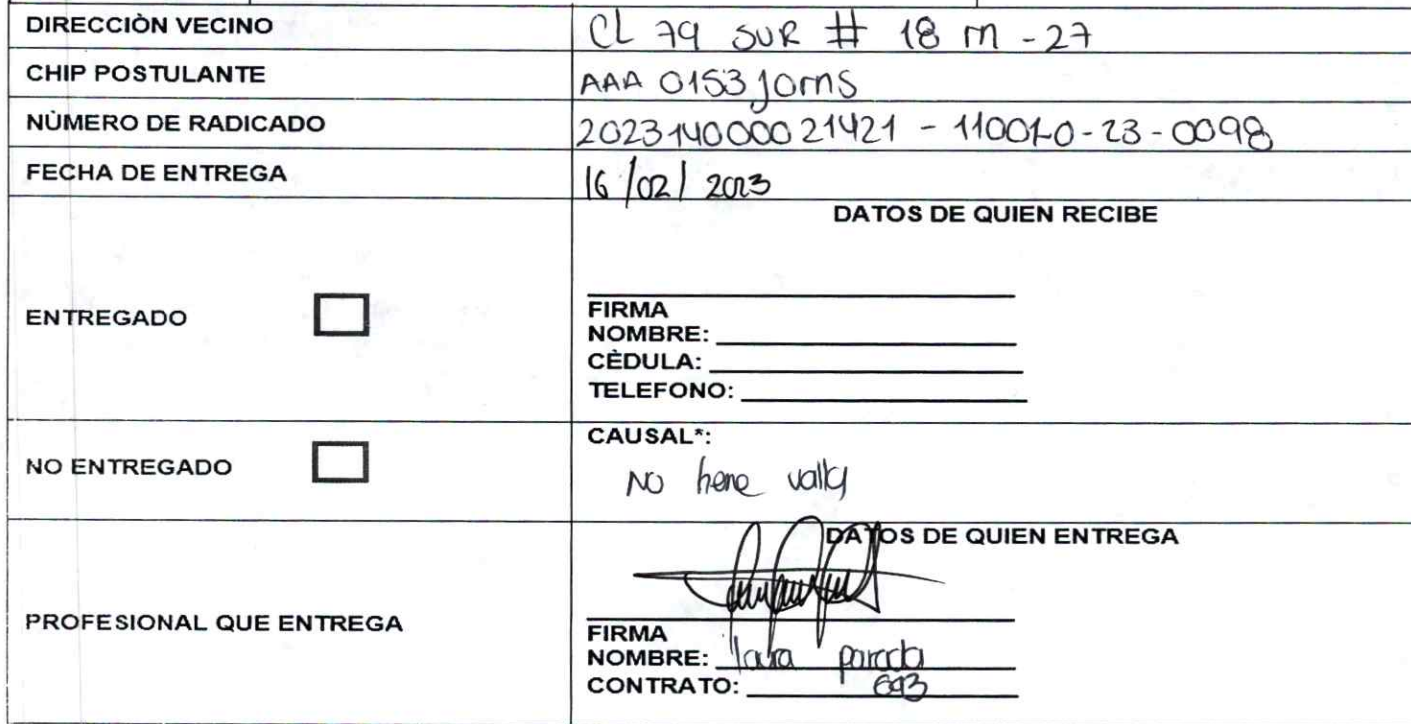 DIRECCIÒN VECINO CL 79 SUR # 18 M - 27
CHIP POSTULANTE AAA 0153 JOMS
NÙMERO DE RADICADO 202314000021421 - 11001-0-23-0098
FECHA DE ENTREGA 16/02/2023
DATOS DE QUIEN RECIBE
ENTREGADO
FIRMA
NOMBRE:
CÈDULA:
TELEFONO:
NO ENTREGADO
CAUSAL*:
No tiene valla
DATOS DE QUIEN ENTREGA
PROFESIONAL QUE ENTREGA
FIRMA
NOMBRE: laura parada
CONTRATO: 693